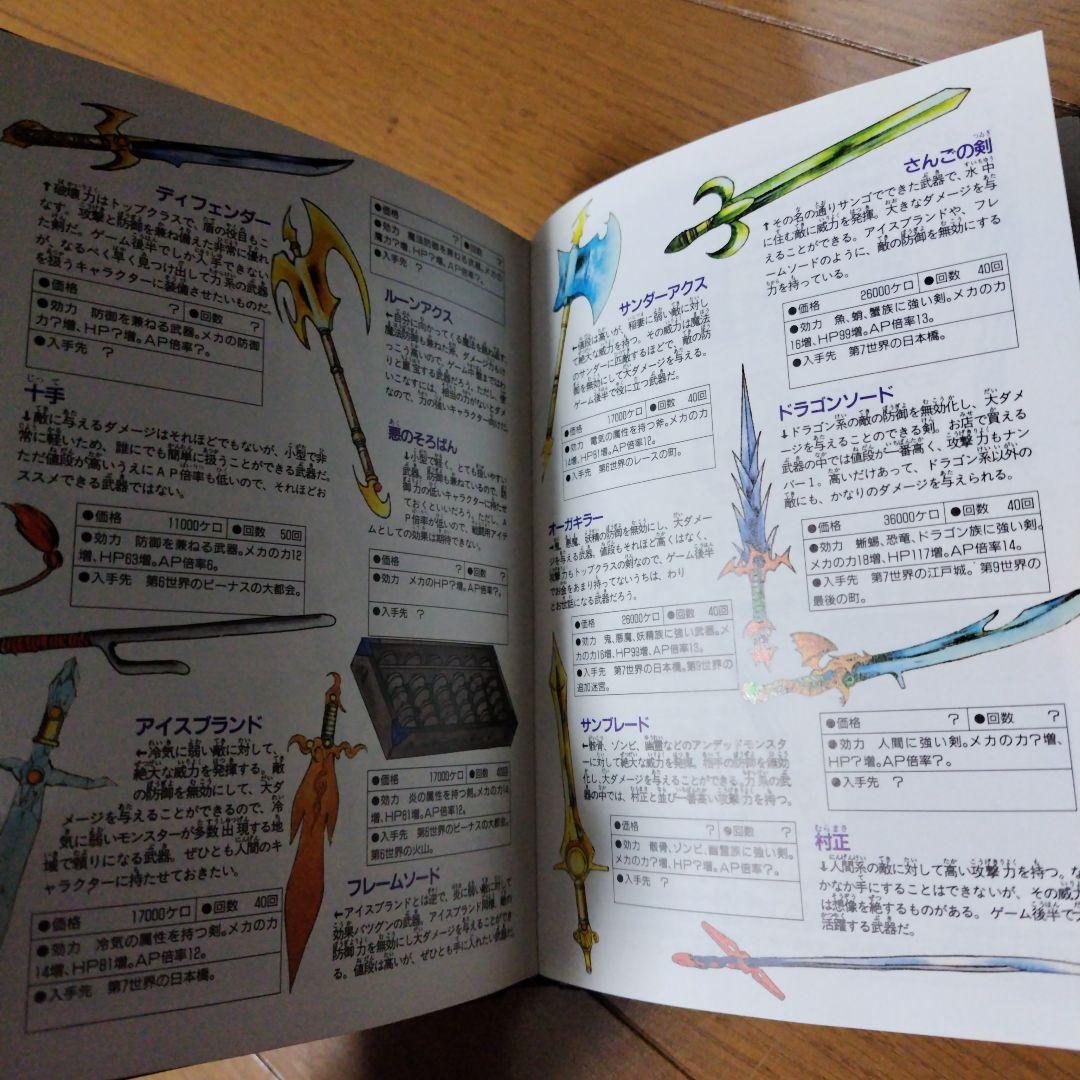 ディフェンダー
↑破壊力はトップクラスで、盾の役目もこ
なす。攻撃と防御を兼ね備えた非常に優れ
た剣だ。ゲーム後半でしか入手できない
が、なるべく早く見つけ出して力系の武器
を扱うキャラクターに装備させたいものだ。
●価格 ？ ●回数 ？
●効力 防御を兼ねる武器。メカの防御
力？増、HP？増。AP倍率？。
●入手先 ？
十手
↓敵に与えるダメージはそれほどでもないが、小型で非
常に軽いため、誰にでも簡単に扱うことができる武器だ。
ただ値段が高いうえにAP倍率も低いので、それほどお
ススメできる武器ではない。
●価格 11000ケロ ●回数 50回
●効力 防御を兼ねる武器。メカの力12
増、HP63増。AP倍率6。
●入手先 第6世界のビーナスの大都会。
アイスブランド
←冷気に弱い敵に対して、
絶大な威力を発揮する。敵
の防御を無効にして、大ダ
メージを与えることができるので、冷
気に弱いモンスターが多数出現する地
域で頼りになる武器。ぜひとも人間のキ
ャラクターに持たせておきたい。
●価格 17000ケロ ●回数 40回
●効力 冷気の属性を持つ剣。メカの力
14増、HP81増。AP倍率12。
●入手先 第7世界の日本橋。
●価格 ？ ●回数 ？
●効力 魔法防御を兼ねる武器。メカの
魔力？増、HP？増。AP倍率？。
●入手先 ？
ルーンアクス
←自分に向かってくる魔法を跳ね返す、
魔法防御も兼ねた斧。ダメージ力もけ
っこう高いので、ゲーム中盤まではわ
りと重宝する武器だろう。ただし、使
いこなすには、相当の力がないとダメ
なので、力の強いキャラクター向けだ。
悪のそろばん
↓小型で軽く、とても扱いやすい
武器。防御も兼ねているので、防
御力の低いキャラクターに持たせ
ておくといいだろう。ただし、A
P倍率が低いので、戦闘用アイテ
ムとしての効果は期待できない。
●価格 ？ ●回数 ？
●効力 メカのHP？増。AP倍率？。
●入手先 ？
●価格 17000ケロ ●回数 40回
●効力 炎の属性を持つ剣。メカの力14
増、HP81増。AP倍率12。
●入手先 第6世界のビーナスの大都会。
第6世界の火山。
フレームソード
←アイスブランドとは逆で、炎に弱い敵に対して
効果バツグンの武器。アイスブランド同様、敵の
防御力を無効にし大ダメージを与えることができ
る。値段は高いが、ぜひとも手に入れたい武器だ。
さんごの剣
↑その名の通りサンゴでできた武器で、水中
に住む敵に威力を発揮。大きなダメージを与
えることができる。アイスブランドや、フレ
ームソードのように、敵の防御を無効にする
力を持っている。
●価格 26000ケロ ●回数 40回
●効力 魚、蛸、蟹族に強い剣。メカの力
16増、HP99増。AP倍率13。
●入手先 第7世界の日本橋。
サンダーアクス
←値段は高いが、稲妻に弱い敵に対し
て絶大な威力を持つ。その威力は魔法
のサンダーに匹敵するほどで、敵の防
御を無効にして大ダメージを与える。
ゲーム後半で役に立つ武器だ。
●価格 17000ケロ ●回数 40回
●効力 電気の属性を持つ斧。メカの力
14増、HP81増。AP倍率12。
●入手先 第6世界のレースの町。
ドラゴンソード
↓ドラゴン系の敵の防御を無効化し、大ダメ
ージを与えることのできる剣。お店で買える
武器の中では値段が一番高く、攻撃力もナン
バー1。高いだけあって、ドラゴン系以外の
敵にも、かなりのダメージを与えられる。
●価格 36000ケロ ●回数 40回
●効力 蜥蜴、恐竜、ドラゴン族に強い剣。
メカの力18増、HP117増。AP倍率14。
●入手先 第7世界の江戸城。第9世界の
最後の町。
オーガキラー
←鬼、悪魔、妖精の防御を無効にし、大ダメー
ジを与える武器。値段もそれほど高くはなく、
攻撃力もトップクラスの剣なので、ゲーム後半
でお金をあまり持ってないうちは、わり
とお世話になる武器だろう。
●価格 26000ケロ ●回数 40回
●効力 鬼、悪魔、妖精族に強い武器。メ
カの力16増、HP99増。AP倍率13。
●入手先 第7世界の日本橋。第9世界の
追加迷宮。
サンブレード
←骸骨、ゾンビ、幽霊などのアンデッドモンスタ
ーに対して絶大な威力を発揮。相手の防御を無効
化し、大ダメージを与えることができる。力系の武
器の中では、村正と並び一番高い攻撃力を持つ。
●価格 ？ ●回数 ？
●効力 骸骨、ゾンビ、幽霊族に強い剣。
メカの力？増、HP？増。AP倍率？。
●入手先 ？
●価格 ？ ●回数 ？
●効力 人間に強い剣。メカの力？増、
HP？増。AP倍率？。
●入手先 ？
村正
↓人間系の敵に対して高い攻撃力を持つ。な
かなか手にすることはできないが、その威力
は想像を絶するものがある。ゲーム後半で大
活躍する武器だ。